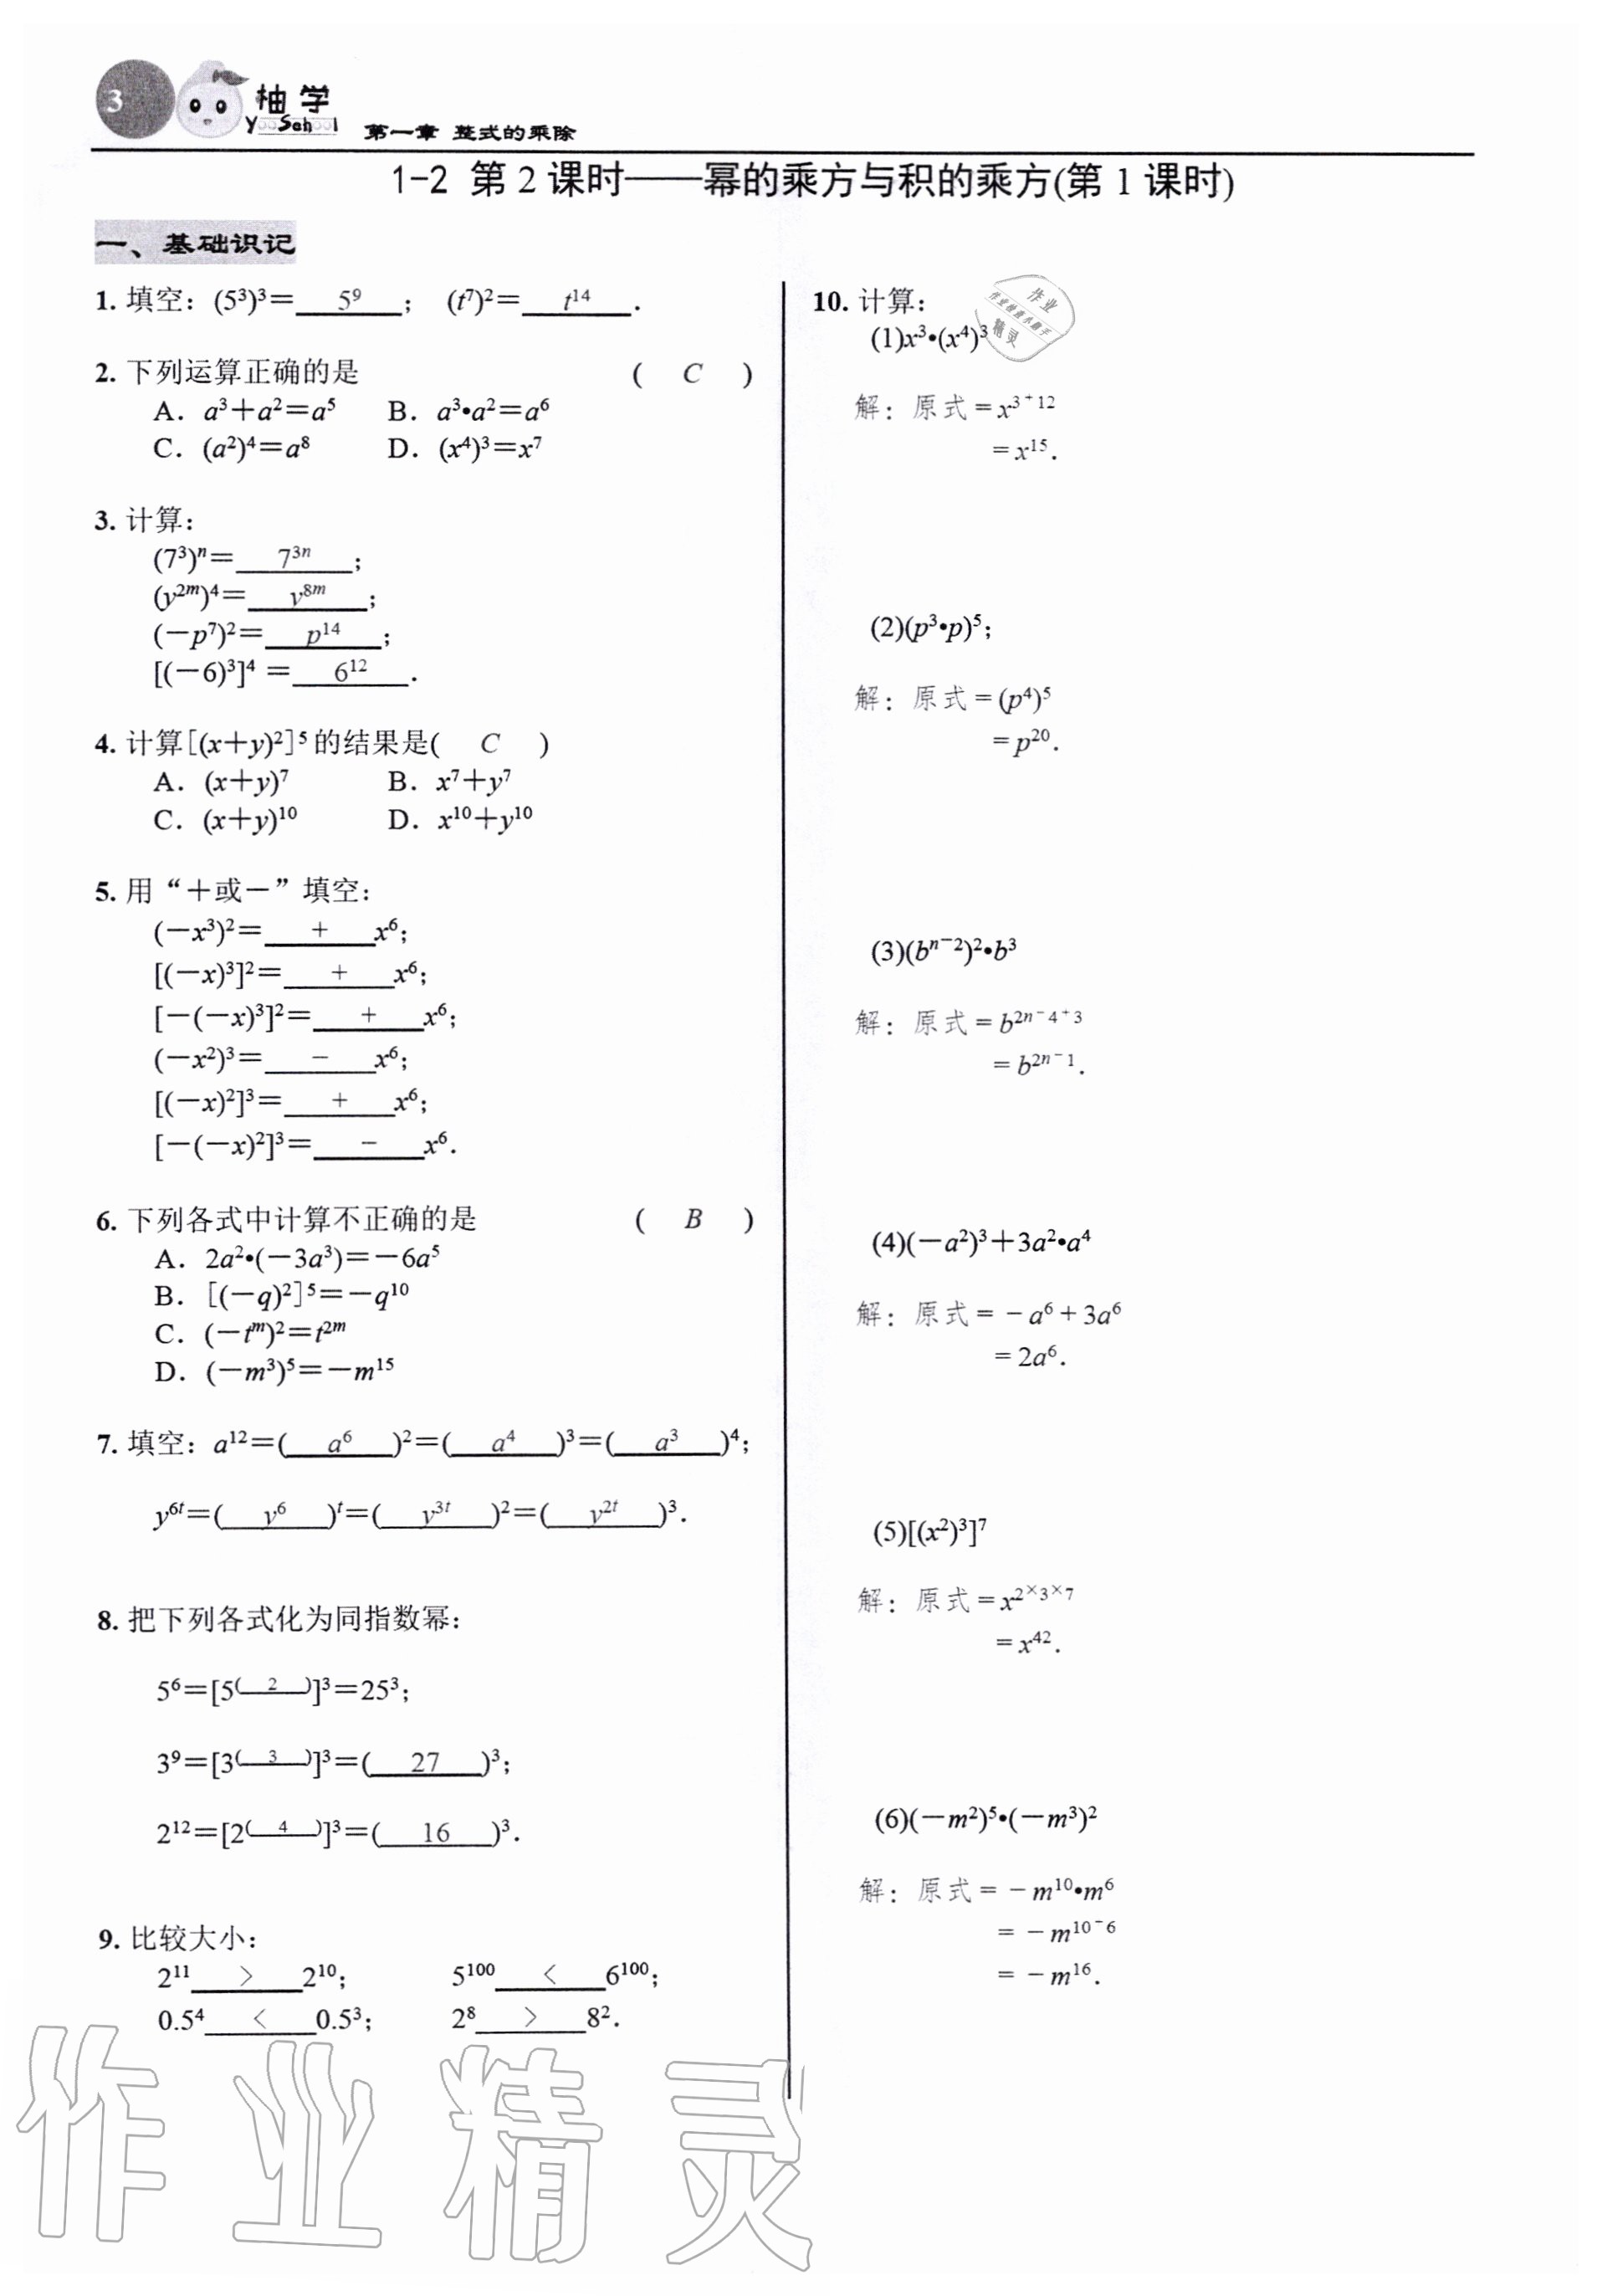 3
柚学
YooSchool
第一章 整式的乘除
1-2 第2课时——幂的乘方与积的乘方(第1课时)
一、基础识记
1. 填空：(5³)³＝ 5⁹ ； (t⁷)²＝ t¹⁴ ．
2. 下列运算正确的是 ( C )
A．a³＋a²＝a⁵ B．a³•a²＝a⁶
C．(a²)⁴＝a⁸ D．(x⁴)³＝x⁷
3. 计算：
(7³)ⁿ＝ 7³ⁿ ；
(y²ᵐ)⁴＝ y⁸ᵐ ；
(－p⁷)²＝ p¹⁴ ；
[(－6)³]⁴ ＝ 6¹² ．
4. 计算[(x＋y)²]⁵的结果是( C )
A．(x＋y)⁷ B．x⁷＋y⁷
C．(x＋y)¹⁰ D．x¹⁰＋y¹⁰
5. 用“＋或－”填空：
(－x³)²＝ + x⁶；
[(－x)³]²＝ + x⁶；
[－(－x)³]²＝ + x⁶；
(－x²)³＝ － x⁶；
[(－x)²]³＝ + x⁶；
[－(－x)²]³＝ － x⁶．
6. 下列各式中计算不正确的是 ( B )
A．2a²•(－3a³)＝－6a⁵
B．[(－q)²]⁵＝－q¹⁰
C．(－tᵐ)²＝t²ᵐ
D．(－m³)⁵＝－m¹⁵
7. 填空：a¹²＝( a⁶ )²＝( a⁴ )³＝( a³ )⁴；
y⁶ᵗ＝( y⁶ )ᵗ＝( y³ᵗ )²＝( y²ᵗ )³．
8. 把下列各式化为同指数幂：
5⁶＝[5⁽ ² ⁾]³＝25³；
3⁹＝[3⁽ ³ ⁾]³＝( 27 )³；
2¹²＝[2⁽ ⁴ ⁾]³＝( 16 )³．
9. 比较大小：
2¹¹ ＞ 2¹⁰； 5¹⁰⁰ ＜ 6¹⁰⁰；
0.5⁴ ＜ 0.5³； 2⁸ ＞ 8²．
10. 计算：
(1)x³•(x⁴)³
解：原式＝x³⁺¹²
＝x¹⁵．
(2)(p³•p)⁵；
解：原式＝(p⁴)⁵
＝p²⁰．
(3)(bⁿ⁻²)²•b³
解：原式＝b²ⁿ⁻⁴⁺³
＝b²ⁿ⁻¹．
(4)(－a²)³＋3a²•a⁴
解：原式＝－a⁶＋3a⁶
＝2a⁶．
(5)[(x²)³]⁷
解：原式＝x²ˣ³ˣ⁷
＝x⁴²．
(6)(－m²)⁵•(－m³)²
解：原式＝－m¹⁰•m⁶
＝－m¹⁰⁻⁶
＝－m¹⁶．
作业
精灵
作业精灵